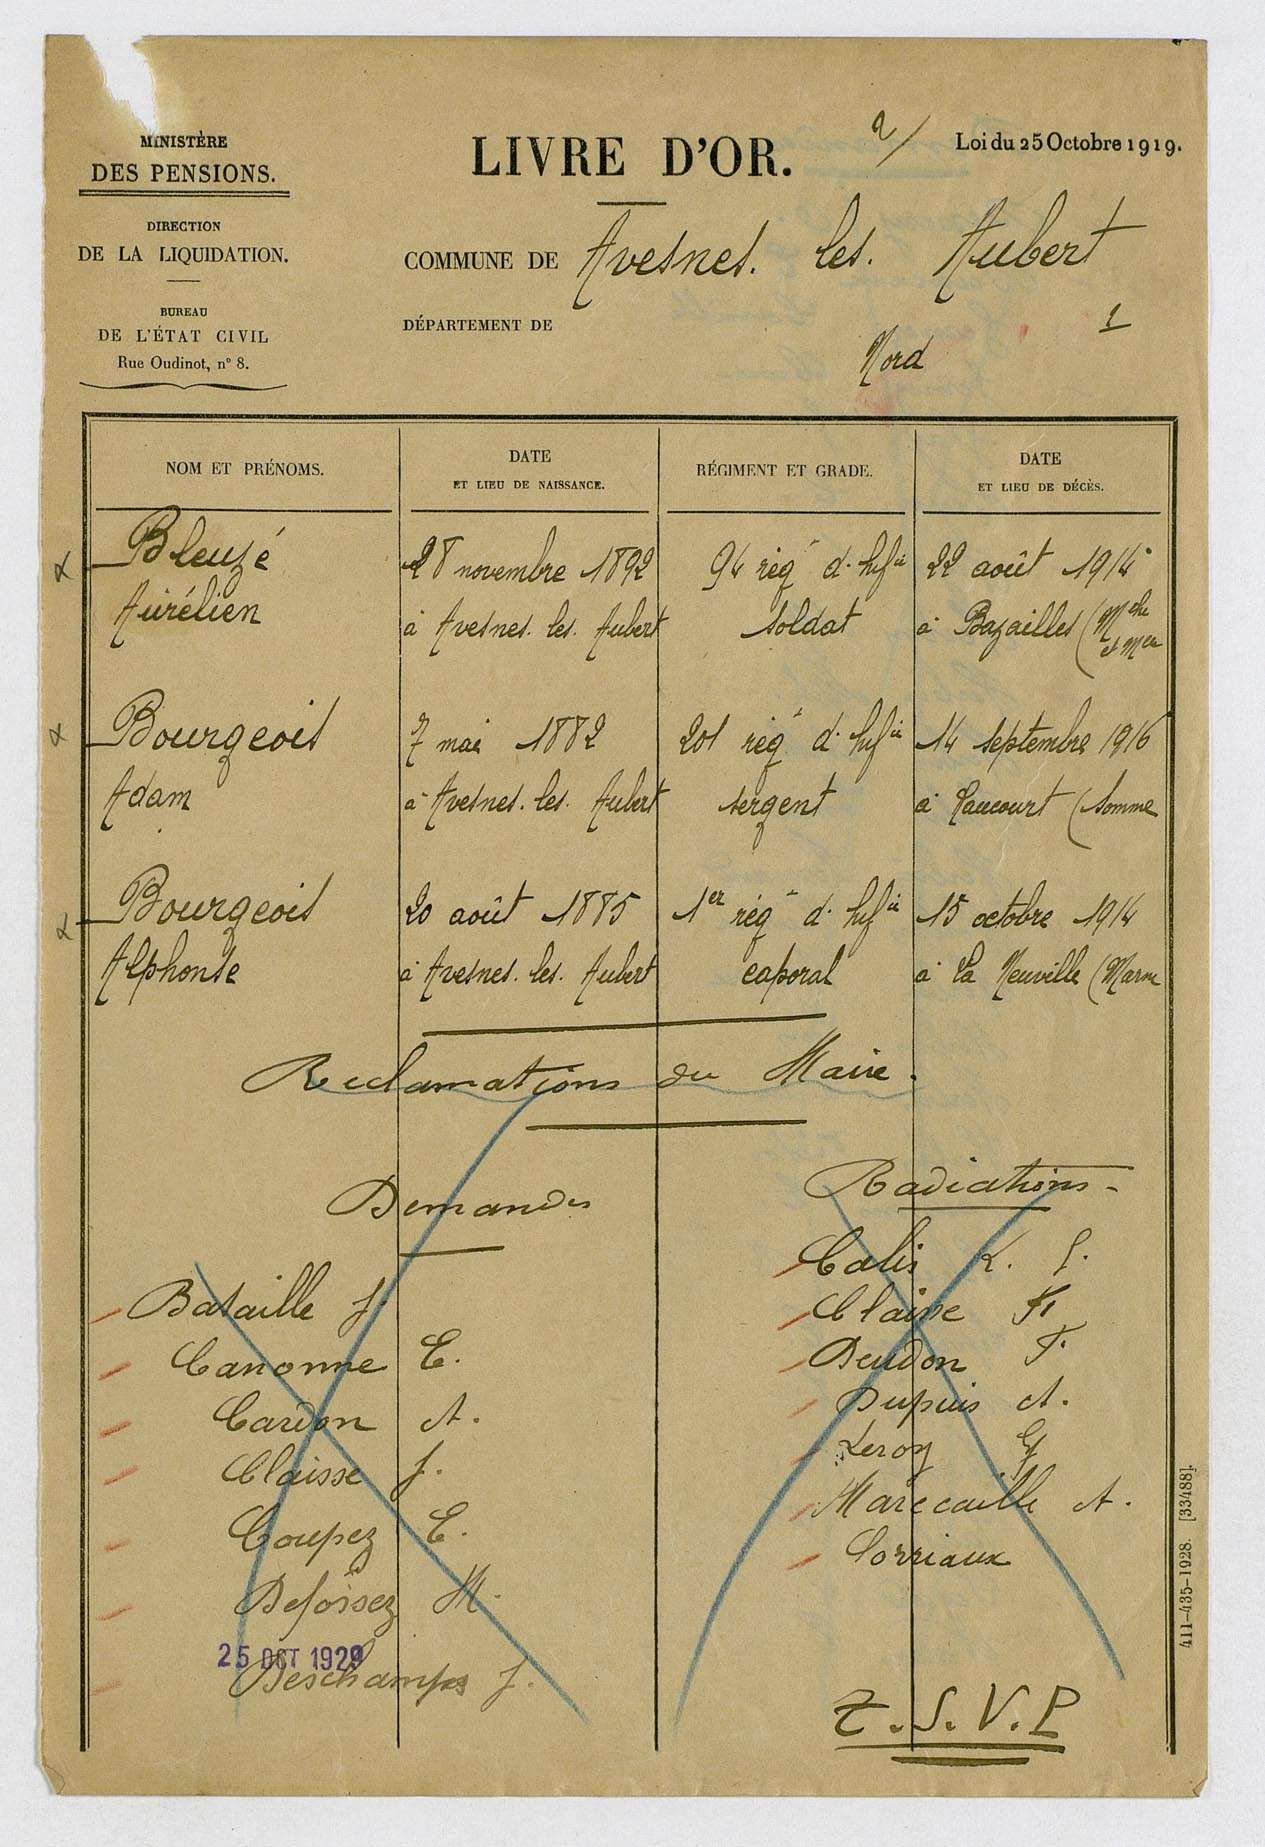 MINISTÈRE
DES PENSIONS.
DIRECTION
DE LA LIQUIDATION.
BUREAU
DE L'ÉTAT CIVIL
Rue Oudinot, n° 8.
LIVRE D'OR.
2/
Loi du 25 Octobre 1919.
COMMUNE DE Avesnes. les. Aubert
DÉPARTEMENT DE
2
Nord
NOM ET PRÉNOMS.
DATE
ET LIEU DE NAISSANCE.
RÉGIMENT ET GRADE.
DATE
ET LIEU DE DÉCÈS.
Bleuzé
Aurélien
28 novembre 1892
à Avesnes. les. Aubert
94 rég d. Inf ie
soldat
22 août 1914
à Bazailles (Mthe
et Mlle
Bourgeois
Adam
7 mai 1882
à Avesnes. les. Aubert
201 rég d. Inf ie
sergent
14 septembre 1916
à (Somme
Bourgeois
Alphonse
20 août 1885
à Avesnes. les. Aubert
1er rég d. Inf ie
caporal
15 octobre 1914
à La Neuville (Marne
Reclamations du Maire.
Demandes
Bataille J.
Canonne E.
Cardon A.
Claisse J.
Coupez E.
Defossez M.
25 OCT 1929
Deschamps J.
Radiations -
Calis
Claisse
Deudon F.
Dupuis A.
Leroy
Marécaille A.
Corriaux
T.S.V.P
411-435-1928. [33488].